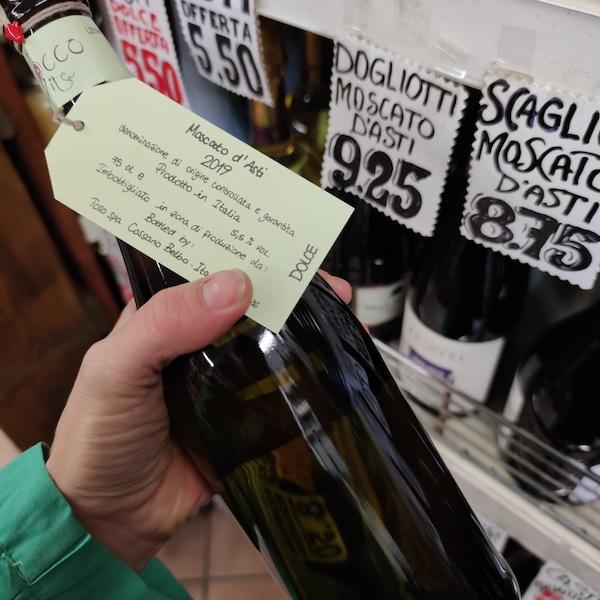 DOLCE
OFFERTA
5.50
OFFERTA
5.50
DOGLIOTTI
MOSCATO
D'ASTI
9.25
MOSCATO
D'ASTI
8.75
Moscato d'Asti
2019
denominazione di origine controllata e garantita
Prodotto in Italia
75 cl e 5,5% VOL.
Imbottigliato in zona di produzione da:
Bottled by:
Toso spa Cossano Belbo-
DOLCE